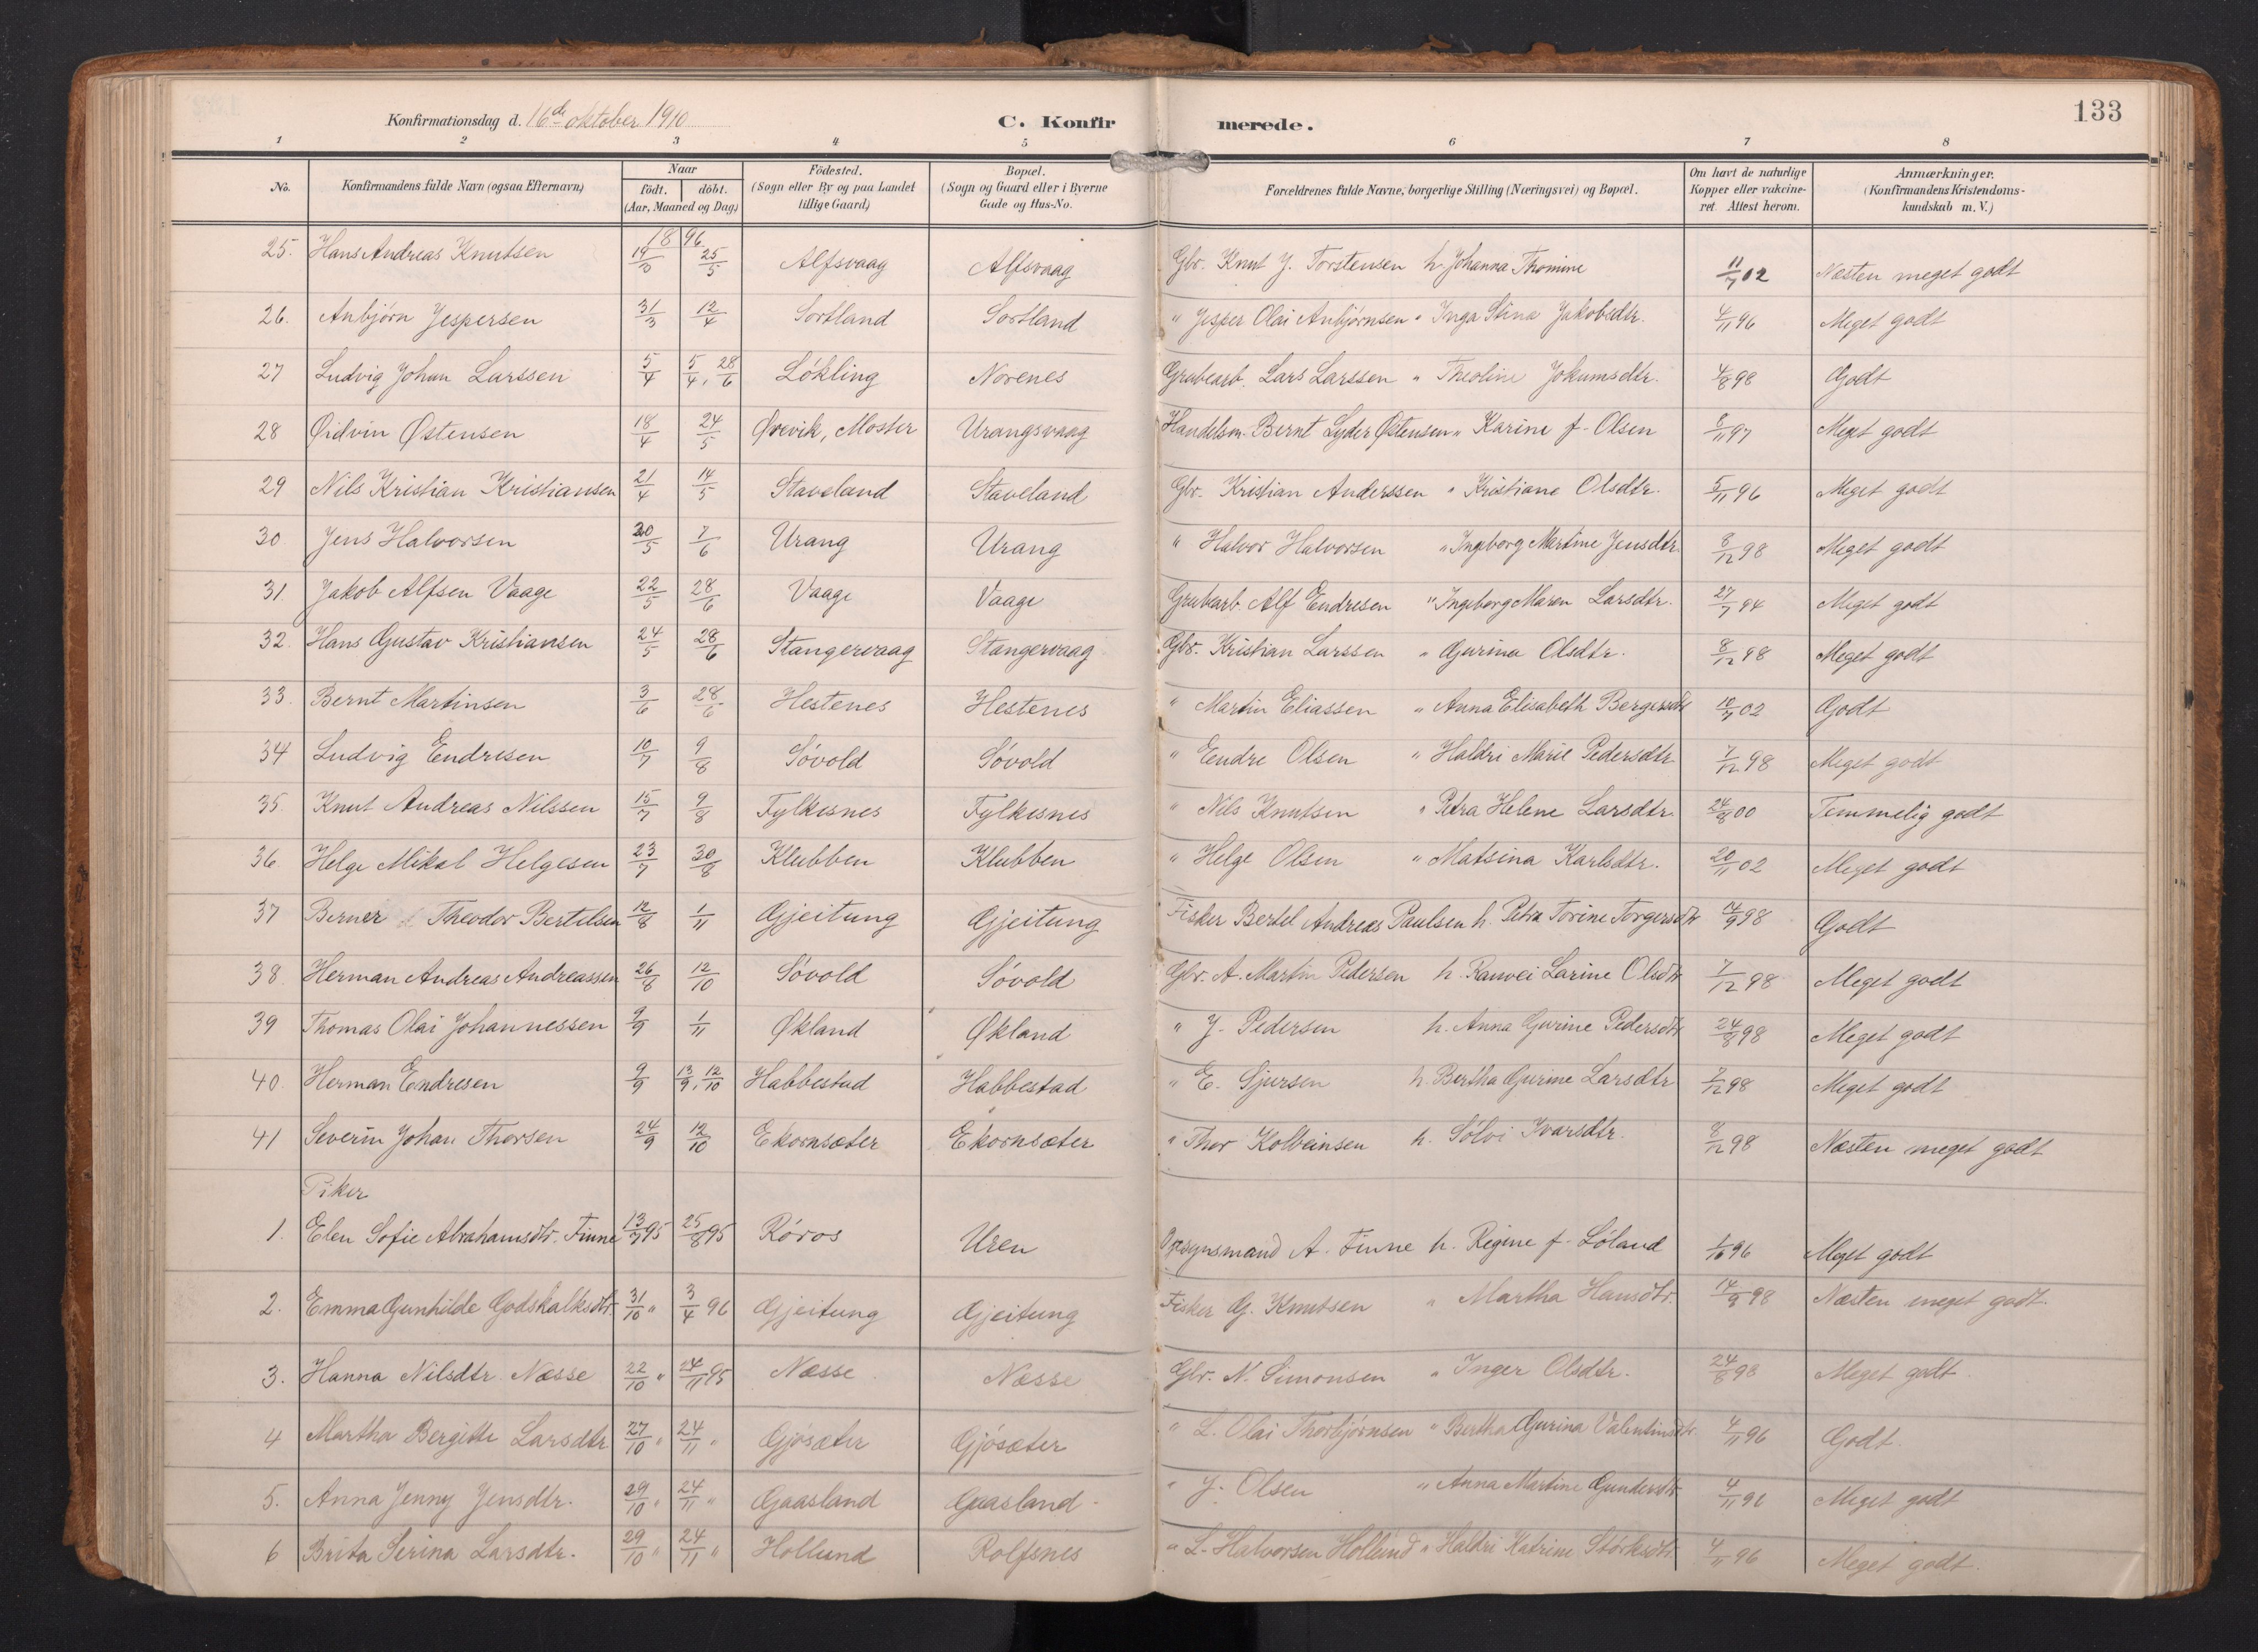 133
Konfirmationsdag d. 16de oktober 1910 C. Konfirmerede.
1 2 3 4 5 6 7 8
No. Konfirmandens fulde Navn (ogsaa Efternavn) Naar født. døbt. (Aar, Maaned og Dag.) Fødested. (Sogn eller By og paa Landet tillige Gaard) Bopæl. (Sogn og Gaard eller i Byerne Gade og Hus-No. Forældrenes fulde Navne, borgerlige Stilling (Næringsvei) og Bopæl. Om havt de naturlige Kopper eller vakcineret. Attest herom. Anmærkninger. (Konfirmandens Kristendomskundskab m. V.)
1896
25. Hans Andreas Knutsen 25/5 Alfsvaag Alfsvaag Gbr. Knut J. Torstensen h. Johanna Thomine 11/7 02 Næsten meget godt
26. Anbjørn Jespersen 31/3 12/4 Sortland Sortland " Jesper Olai Anbjørnsen " Inga Stina Jakobsdtr. 4/11 96 Meget godt
27 Ludvig Johan Larssen 5/4 5/4, 28/6 Løkling Norenes Grubearb. Lars Larssen " Theoline Jokumsdtr. 4/8 98 Godt
28 Øidvin Østensen 18/4 24/5 Øvevik, Moster Urangsvaag Handelsm. Bernt Lyder Østensen " Karine f. Olsen 8/11 97 Meget godt
29 Nils Kristian Kristiansen 21/4 14/5 Staveland Staveland Gbr. Kristian Anderssen " Kristiane Olsdtr. 5/11 96 Meget godt
30 Jens Halvorsen 20/5 7/6 Urang Urang " Halvor Halvorsen " Ingeborg Martine Jensdtr. 8/12 98 Meget godt
31. Jakob Alfsen Vaage 22/5 28/6 Vaage Vaage Grubearb. Alf Endresen " Ingeborg Maren Larsdtr. 27/7 94 Meget godt
32. Hans Gustav Kristiansen 24/5 28/6 Stangervaag Stangervaag Gbr. Kristian Larssen " Gurina Olsdtr. 8/12 98 Meget godt
33. Bernt Martinsen 3/6 28/6 Hestenes Hestenes " Martin Eliassen " Anna Elisabeth Bergersdtr 10/7 02 Godt
34 Ludvig Endresen 10/7 9/8 Søvold Søvold " Endre Olsen " Haldri Marie Pedersdtr 7/12 98 Meget godt
35. Knut Andreas Nilssen 15/7 9/8 Fylkesnes Fylkesnes " Nils Knutsen " Petra Helene Larsdtr. 24/8 00 Temmelig godt
36. Helge Mikal Helgesen 23/7 30/8 Klubben Klubben " Helge Olsen " Matsina Karlsdtr. 20/11 02 Meget godt
37 Berner Theodor Bertelsen 12/8 1/11 Gjeitung Gjeitung Fisker Bertel Andreas Paulsen h. Petra Torine Torgersdtr 14/9 98 Godt
38. Herman Andreas Andreassen 26/8 12/10 Søvold Søvold Gbr. A. Martin Pedersen h. Ranvei Larine Olsdtr 7/12 98 Meget godt
39 Thomas Olai Johannessen 9/9 1/11 Økland Økland " J. Pedersen h. Anna Gurine Pedersdtr 24/8 98 Meget godt
40. Herman Endresen 9/9 13/9, 12/10 Habbestad Habbestad " E. Sjursen h. Bertha Gurine Larsdtr 7/12 98 Meget godt
41 Severin Johan Thorsen 24/9 12/10 Ekornsæter Ekornsæter " Thor Kolbeinsen h. Sølvi Ivarsdtr. 8/12 98 Næsten meget godt
Piker
1. Elen Sofie Abrahamsdtr. Finne 13/7 95 25/8 95 Røros Uren Opsynsmand A. Finne h. Regine f. Løland 96 Meget godt
2. Emma Gunhilde Godskalksdtr. 31/10 " 3/4 96 Gjeitung Gjeitung Fisker G. Knutsen " Martha Hansdtr. 14/9 98 Næsten meget godt.
3. Hanna Nilsdtr. Næsse 22/10 " 24/11 95 Næsse Næsse Gbr. N. Simonsen " Inger Olsdtr. 24/8 98 Meget godt
4 Martha Bergitte Larsdtr 27/10 " 24/11 " Gjøsæter Gjøsæter " L. Olai Thorbjørnsen " Bertha Gurina Valentinsdtr. 4/11 96 Godt.
5. Anna Jenny Jensdtr. 29/10 " 24/11 " Gaasland Gaasland " J. Olsen " Anna Martine Gundersdtr 4/11 96 Meget godt
6 Brita Serina Larsdtr. 29/10 " 24/11 " Hollund Rolfsnes " L. Halvorsen Hollund " Haldri Katrine Størksdtr. 4/11 96 Meget godt.